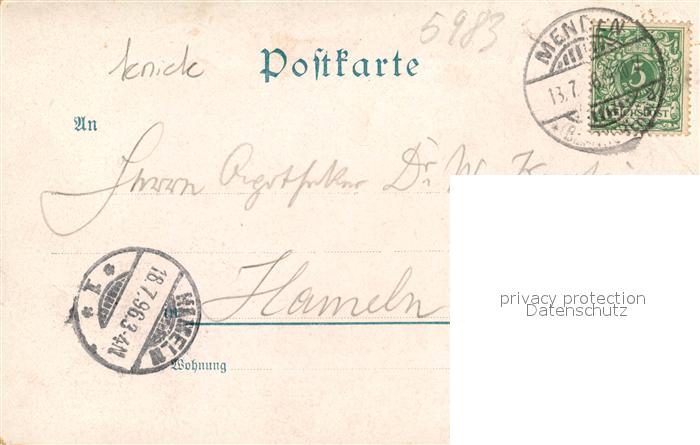 5983
knick Postkarte
MENDEN
13.7.
5
REICHSPOST
An
Herrn Apotheker Dr. W.
privacy protection
Datenschutz
HAMELN
18.7.96.3-4N
* 1 *
in Hameln
Wohnung